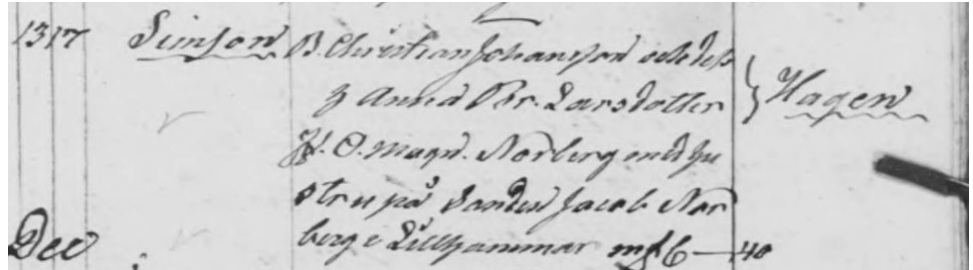 13 17 Simson B. Christian Johansson och dess
h Anna Br. Larsdotter } Hagen
H. O. Magn. Norberg med hu
stru på Sanden Jacob Nor
Dec berg i Lillhammar mf 6 — 40